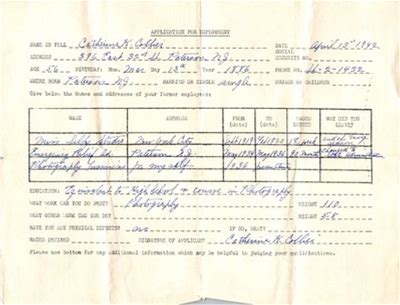 APPLICATION FOR EMPLOYMENT
NAME IN FULL Catherine K. Collier DATE April 13th 1942
ADDRESS 396 East 32nd St Paterson N.J. SOCIAL SECURITY NO.
AGE 56 BIRTHDAY: Mon. Mar Day 13th Year 1886 PHONE NO. Sh-2-1432
WHERE BORN Paterson N.J. MARRIED OR SINGLE single NUMBER OF CHILDREN
Give below the Names and Addresses of your former employers:
NAME ADDRESS FROM (date) TO (date) WAGES EARNED WHY DID YOU LEAVE?
Studios New York City Sept 1919
Emergency Relief Ad Paterson N.J. May 1934 May 1936
Photography for my self 1936
EDUCATION: Equivalent to High School & course in Photography
WHAT WORK CAN YOU DO BEST? Photography WEIGHT 110
WHAT OTHER WORK CAN YOU DO? HEIGHT 5.5
HAVE YOU ANY PHYSICAL DEFECTS? no IF SO, WHAT?
WAGES DESIRED SIGNATURE OF APPLICANT Catherine K. Collier
Please use bottom for any additional information which may be helpful in judging your qualifications.